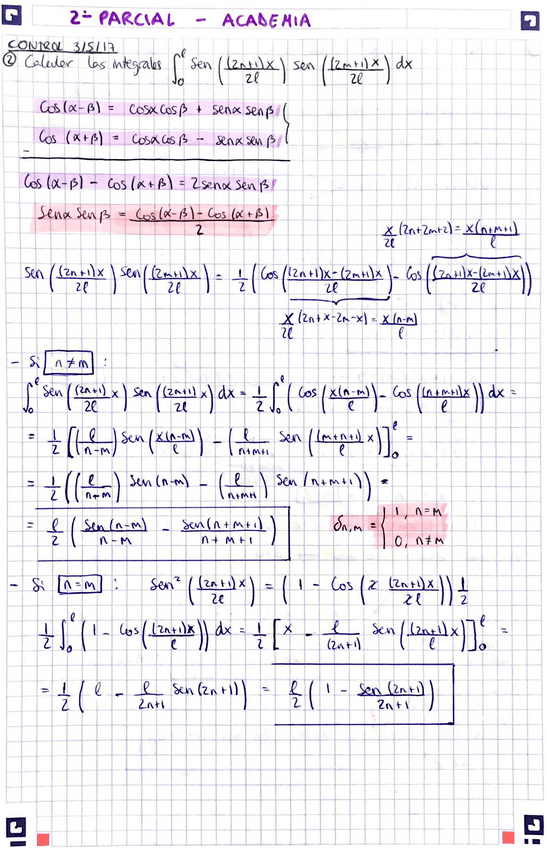 2º PARCIAL - ACADEMIA
CONTROL 3/5/17
② Calcular las integrales ∫₀^ℓ sen((2n+1)x/2ℓ) sen((2m+1)x/2ℓ) dx
Cos(α-β) = cosα cosβ + senα senβ
Cos(α+β) = cosα cosβ - senα senβ
Cos(α-β) - Cos(α+β) = 2senα senβ
Senα Senβ = (Cos(α-β) - Cos(α+β))/2
x/2ℓ (2n+2m+2) = x(n+m+1)/ℓ
Sen((2n+1)x/2ℓ) Sen((2m+1)x/2ℓ) = 1/2 (Cos(((2n+1)x-(2m+1)x)/2ℓ) - Cos(((2n+1)x-(2m+1)x)/2ℓ))
x/2ℓ (2n+x-2m-x) = x(n-m)/ℓ
- Si n≠m :
∫₀^ℓ Sen((2n+1)/2ℓ x) sen((2m+1)/2ℓ x) dx = 1/2 ∫₀^ℓ (Cos(x(n-m)/ℓ) - Cos((n+m+1)x/ℓ)) dx =
= 1/2 [(ℓ/(n-m)) Sen(x(n-m)/ℓ) - (ℓ/(n+m+1) Sen((m+n+1)/ℓ x)]₀^ℓ =
= 1/2 ((ℓ/(n-m)) Sen(n-m) - (ℓ/(n+m+1)) Sen(n+m+1)) =
= ℓ/2 (Sen(n-m)/(n-m) - Sen(n+m+1)/(n+m+1))
δn,m = { 1, n=m
0, n≠m
- Si n=m : Sen²((2n+1)x/2ℓ) = (1 - Cos(2 (2n+1)x/2ℓ)) 1/2
1/2 ∫₀^ℓ (1 - Cos((2n+1)x/ℓ)) dx = 1/2 [x - ℓ/(2n+1) Sen((2n+1)/ℓ x)]₀^ℓ =
= 1/2 (ℓ - ℓ/2n+1 Sen(2n+1)) = ℓ/2 (1 - Sen(2n+1)/2n+1)